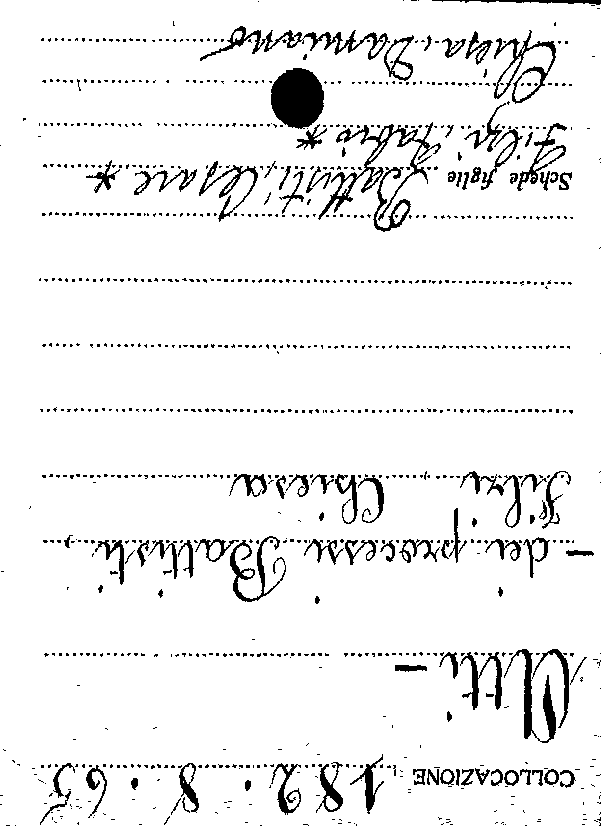 COLLOCAZIONE 182.8.65
Atti -
- dei processi Battisti,
Filzi, Chiesa
Schede figlie Battisti, Cesare *
Filzi, Fabio *
Chiesa, Damiano